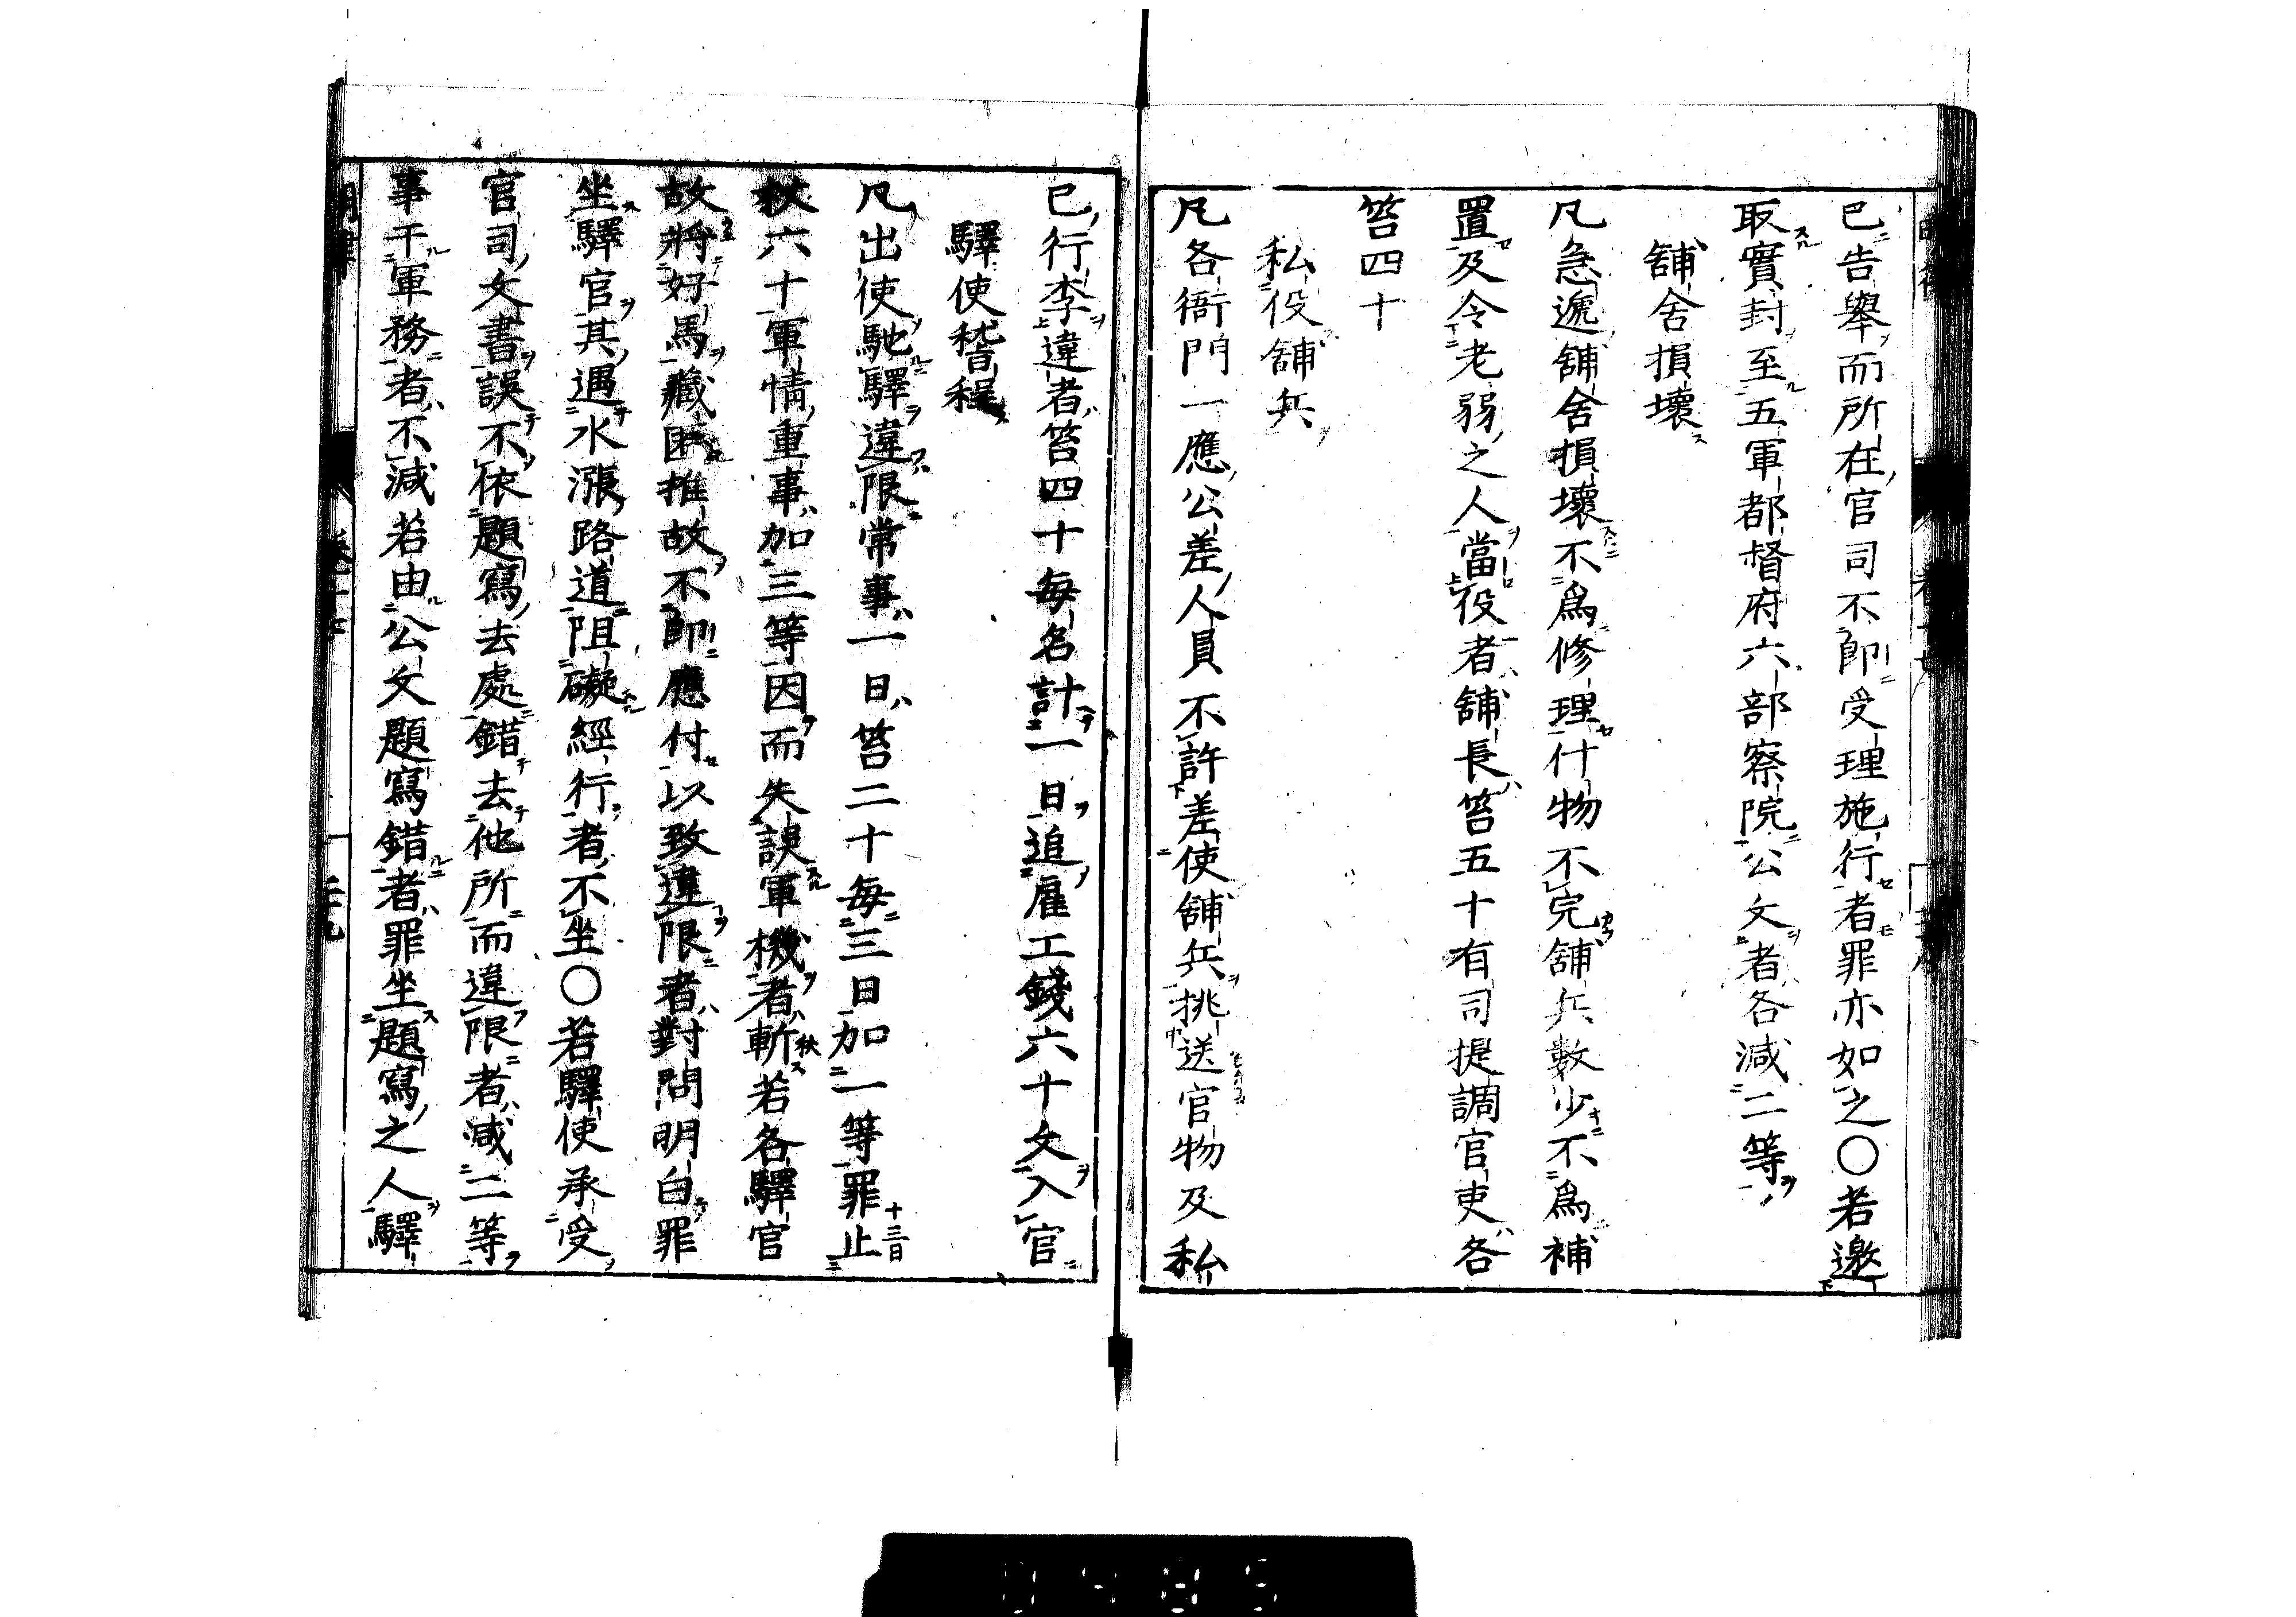 已告舉而所在官司不卽受理施行者罪亦如之○若邀
取實封至五軍都督府六部察院公文者各減二等
舖舍損壞
凡急遞舖舍損壞不爲修理什物不完舖兵數少不爲補
置及令老弱之人當役者舖長笞五十有司提調官吏各
笞四十
私役舖兵
凡各衙門一應公差人員不許差使舖兵挑送官物及私
已行李違者笞四十每名計一日追雇工錢六十文入官
驛使稽程
凡出使馳驛違限常事一日笞二十每三日加一等罪止
杖六十軍情重事加三等因而失誤軍機者斬若各驛官
故將好馬藏匿推故不卽應付以致違限者對問明白罪
坐驛官其遇水漲路道阻礙經行者不坐○若驛使承受
官司文書誤不依題寫去處錯去他所而違限者減二等
事干軍務者不減若由公文題寫錯者罪坐題寫之人驛